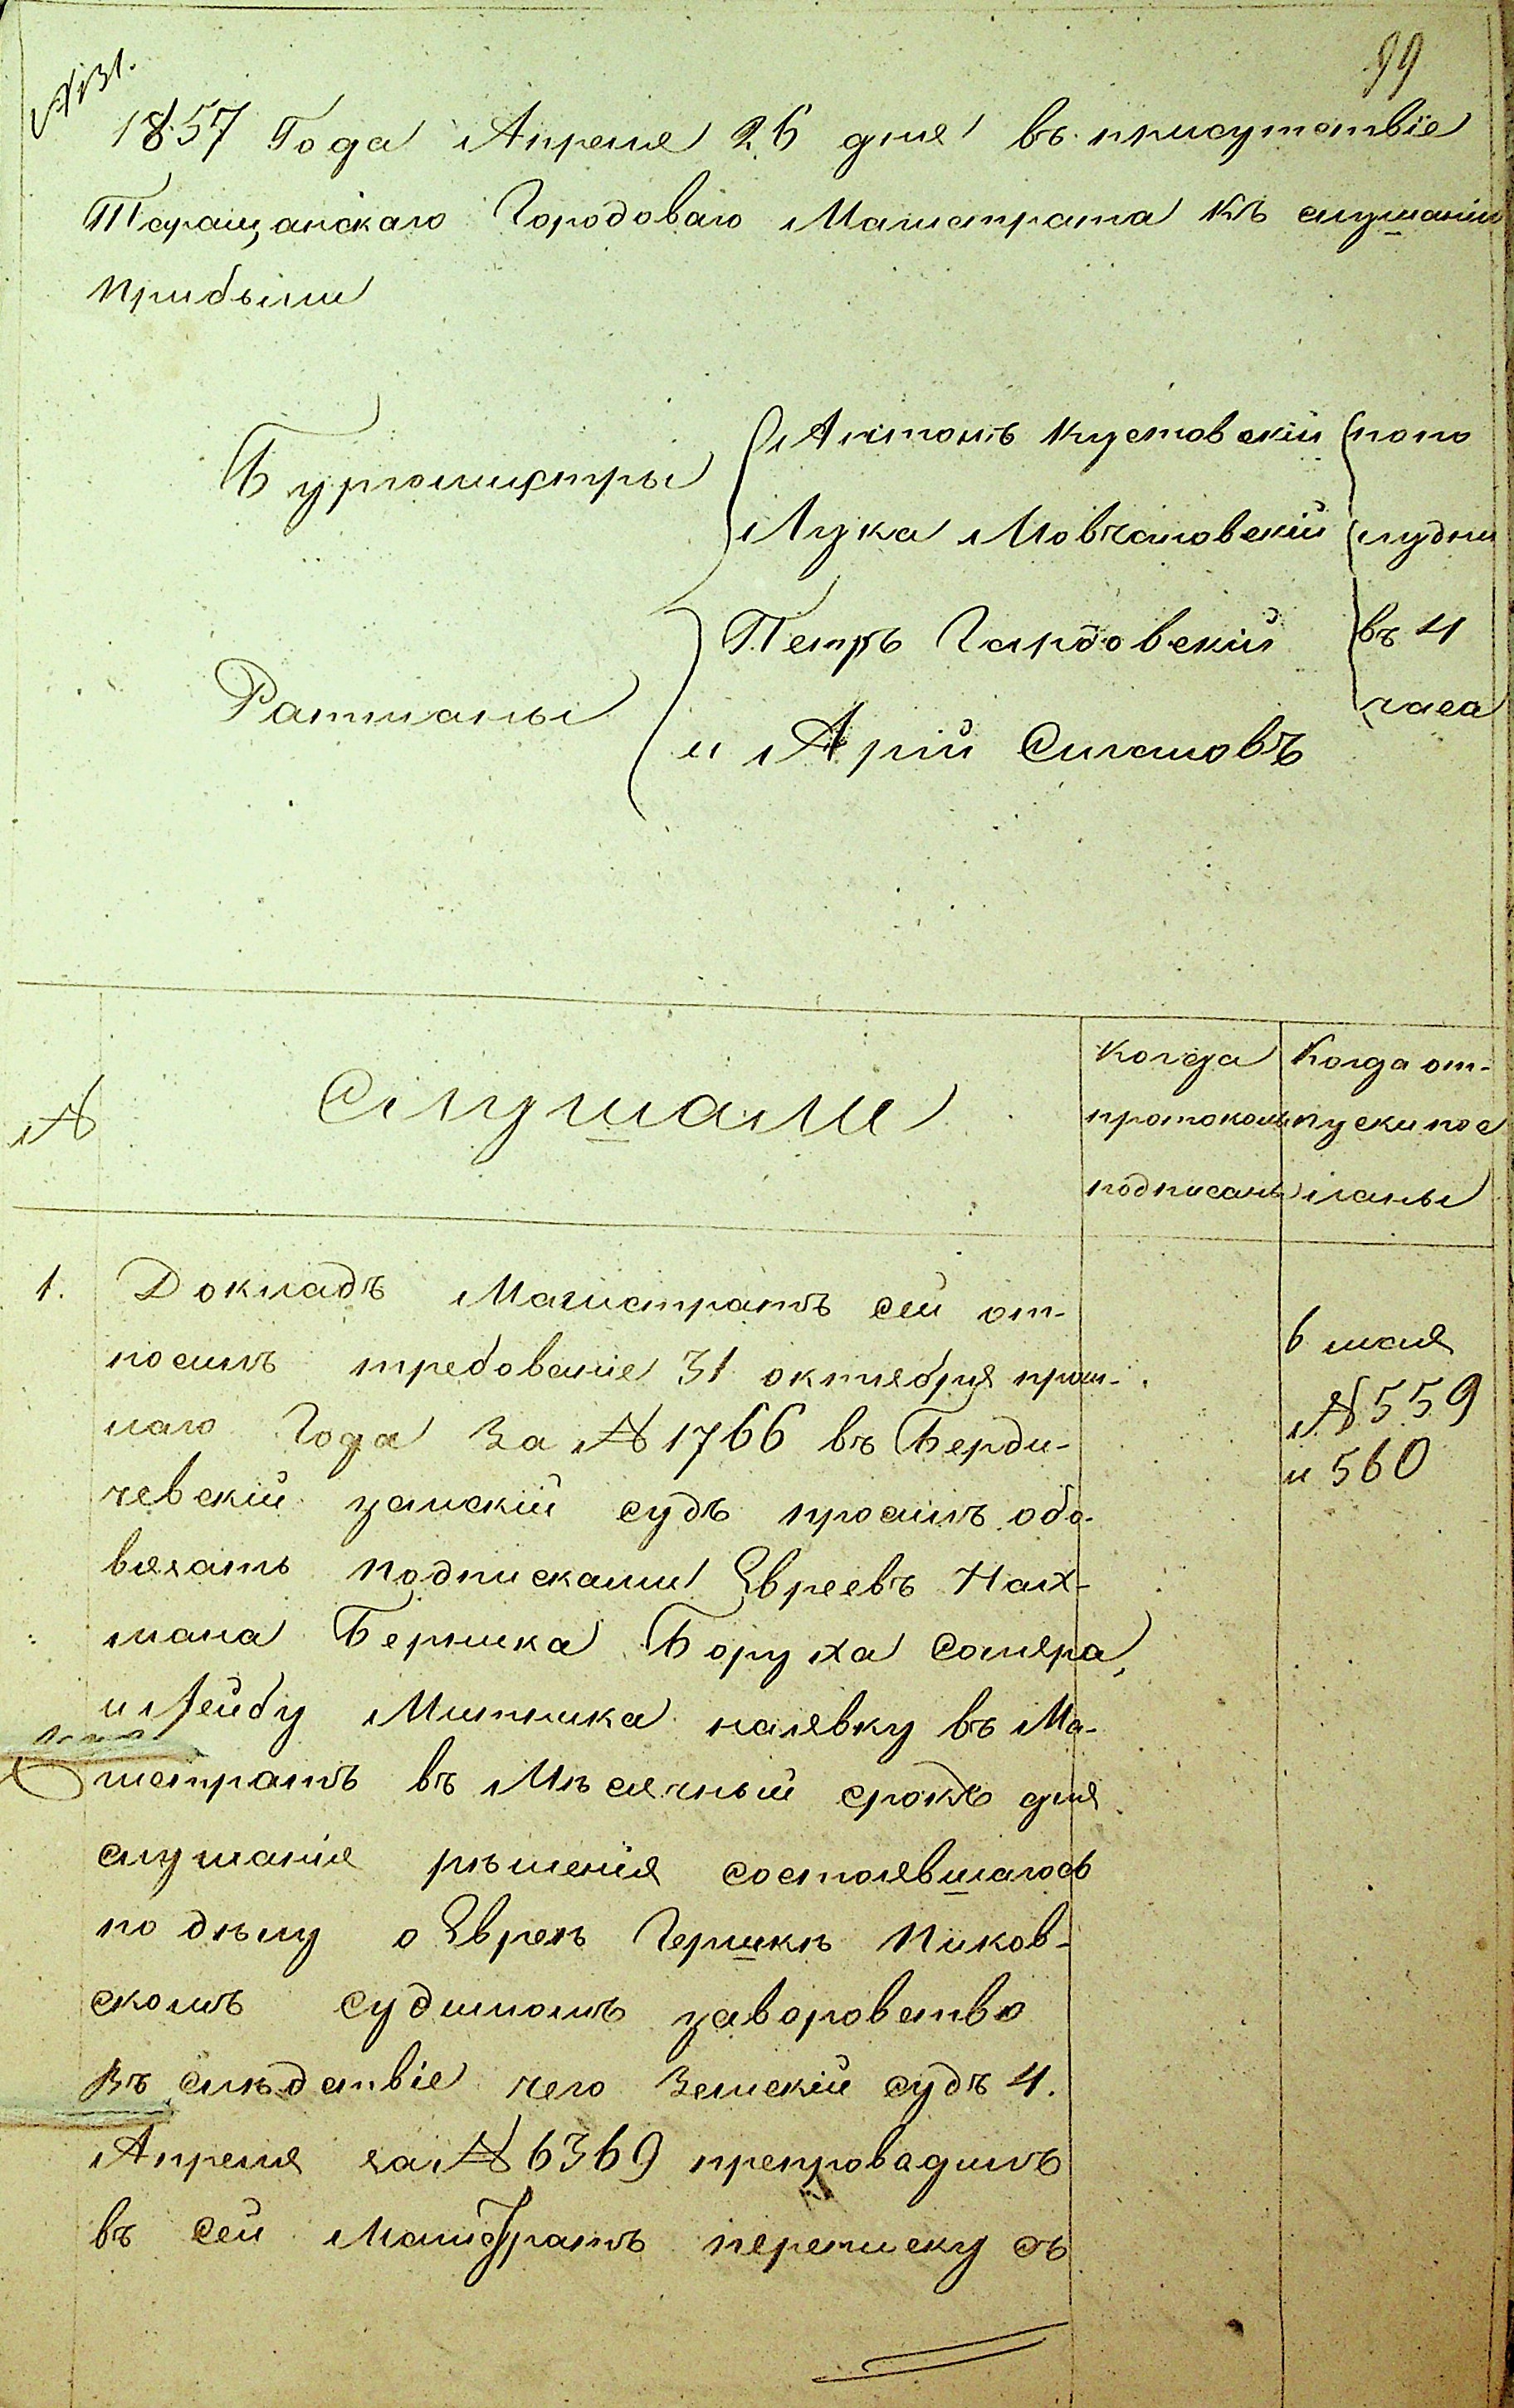 №31.
99
1857 Года Апреля 26 дня въ присутствіе
Таращанскаго Городоваго Магистрата къ слушанію
прибыли
Бургомистры
Антонъ Кустовскій
Лука Мовчановскій
Ратманы
Петръ Гардовскій
и Арій Сигаловъ
попо
лудни
въ 4
часа
№
Слушали
Когда
протоколъ
подписанъ
Когда от-
пуски пос
ланы
1. Докладъ Магистратъ сей от-
носилъ требованіе 31 октября прош-
лаго Года За №1766 въ Берди-
чевскій земскій судъ просилъ обо-
вязать подписками Евреевъ Нах-
мана Берника Боруха Сомера,
и Лейбу Митника наявку въ Ма-
гистратъ въ Мѣсячный срокъ для
слушанія рѣшенія состоявшагось
по дѣлу о Евреѣ Гершкѣ Пиков-
скомъ судимомъ заворовство
Въ слѣдствіе чего Земскій судъ 4.
Апреля за №6369 препроводилъ
въ сей Магистратъ переписку съ
6 мая
№559
и 560